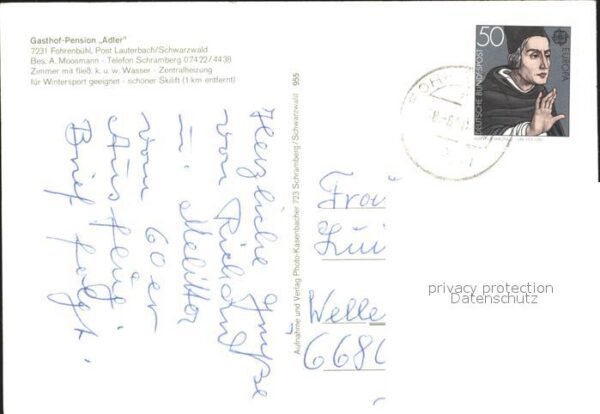 Gasthof-Pension „Adler"
7231 Fohrenbühl, Post Lauterbach/Schwarzwald
Bes. A. Moosmann - Telefon Schramberg 07422/4438
Zimmer mit fließ. k. u. w. Wasser - Zentralheizung
für Wintersport geeignet - schöner Skilift (1 km entfernt)
Herzliche Grüße
von Richard
u. Melitta
vom 60er
Ausflug.
Brief folgt.
Aufnahme und Verlag Photo-Kasenbacher 723 Schramberg/Schwarzwald 955
50
DEUTSCHE BUNDESPOST
EUROPA
CEPT
Frau
Lui
Welle
6680
privacy protection
Datenschutz